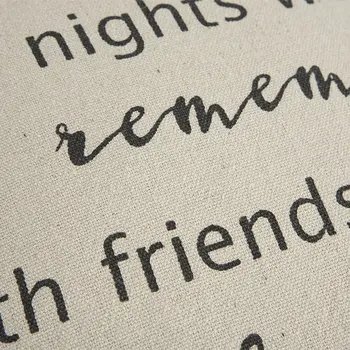 nights w
remem
th friends